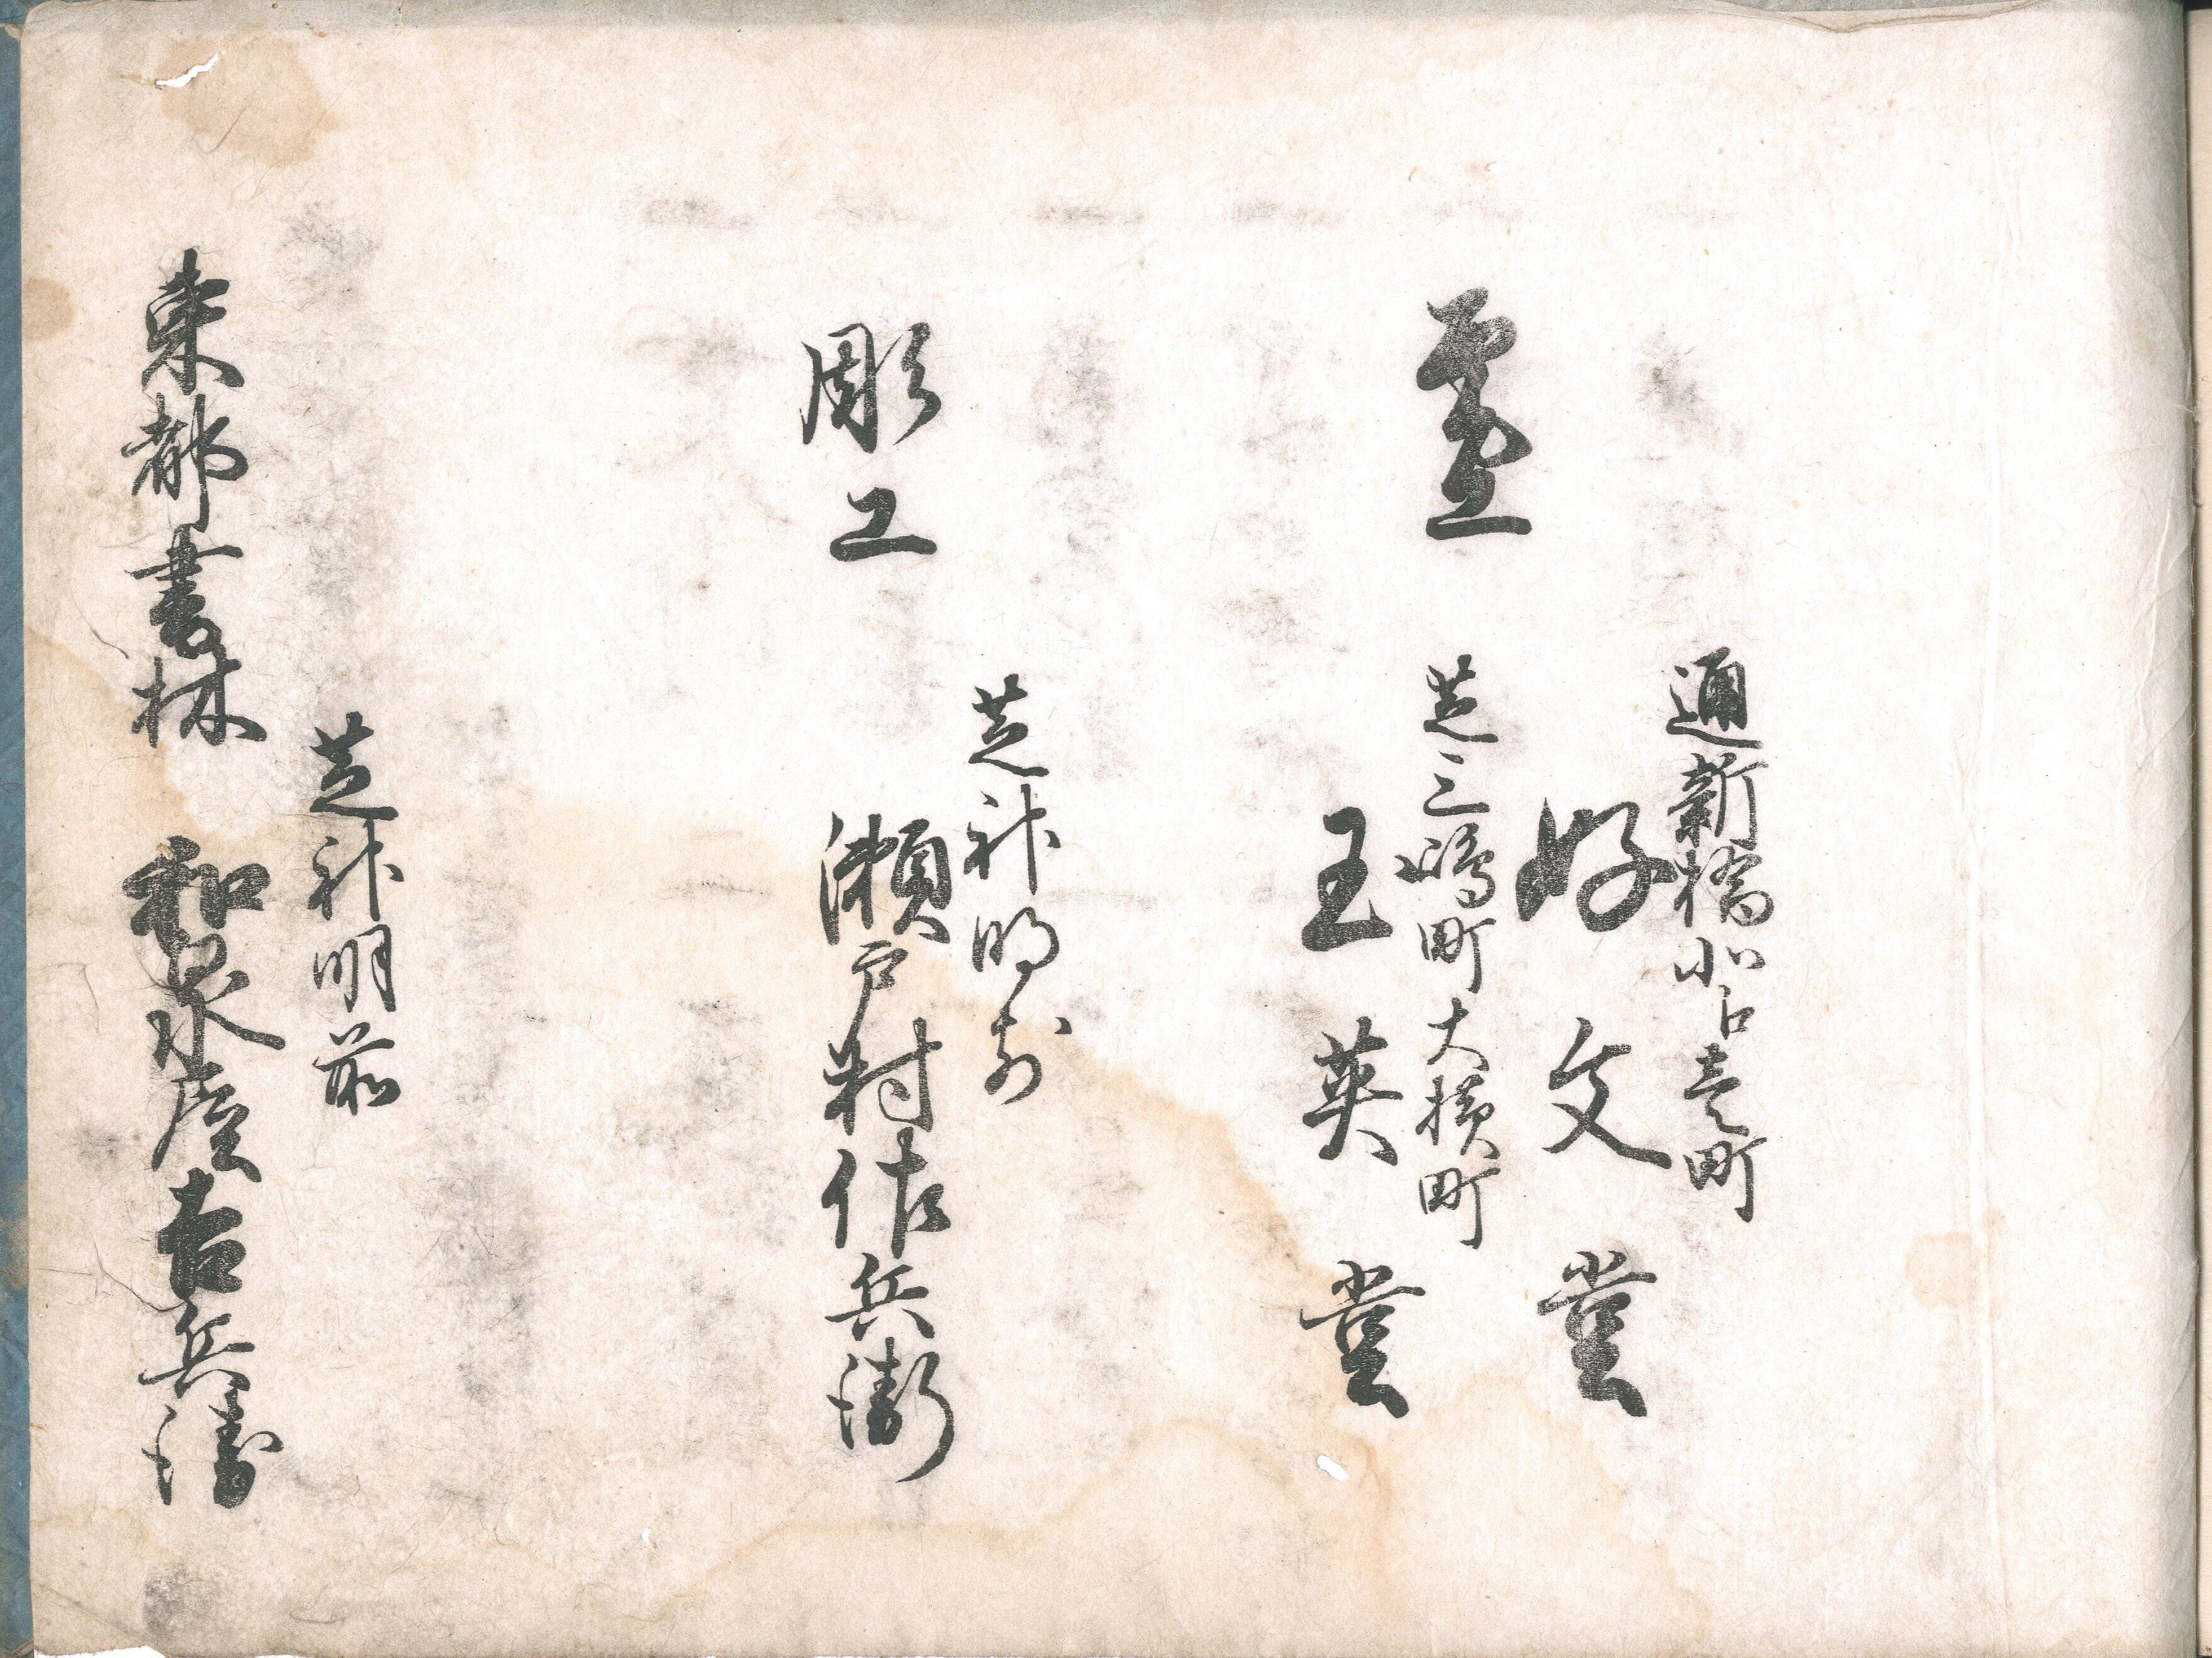 通新橋
好文堂
芝三嶋町大横町
玉英堂
彫工
芝神明前
瀬戸村佐兵衛
芝神明前
東都書林 和泉屋吉兵衛